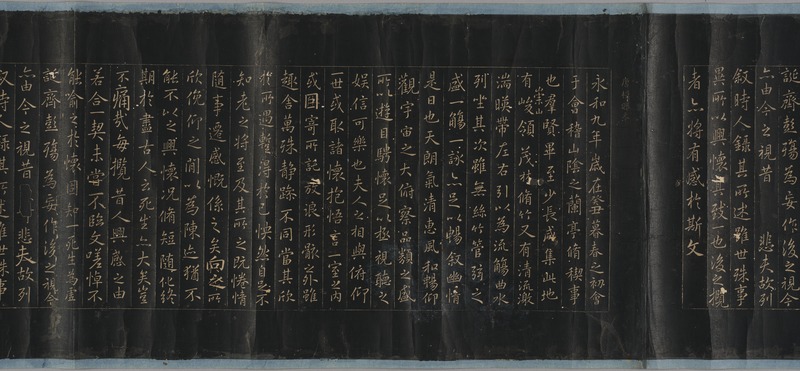 誕齊彭殤為妄作後之視今
亦由今之視昔 悲夫故列
敘時人錄其所述雖世殊事
異所以興懷其致一也後之攬
者亦將有感於斯文
永和九年歲在癸丑暮春之初會
于會稽山陰之蘭亭脩稧事
也羣賢畢至少長咸集此地
有崇山峻領茂林脩竹又有清流激
湍暎帶左右引以為流觴曲水
列坐其次雖無絲竹管弦之
盛一觴一詠亦足以暢敘幽情
是日也天朗氣清惠風和暢仰
觀宇宙之大俯察品類之盛
所以遊目騁懷足以極視聽之
娛信可樂也夫人之相與俯仰
一世或取諸懷抱悟言一室之內
或因寄所託放浪形骸之外雖
趣舍萬殊靜躁不同當其欣
於所遇蹔得於己怏然自足不
知老之將至及其所之既惓情
隨事遷感慨係之矣向之所
欣俛仰之閒以為陳迹猶不
能不以之興懷況脩短隨化終
期於盡古人云死生亦大矣豈
不痛哉每攬昔人興感之由
若合一契未嘗不臨文嗟悼不
能喻之於懷固知一死生為虛
誕齊彭殤為妄作後之視今
亦由今之視昔 悲夫故列
敘時人錄其所述雖世殊事